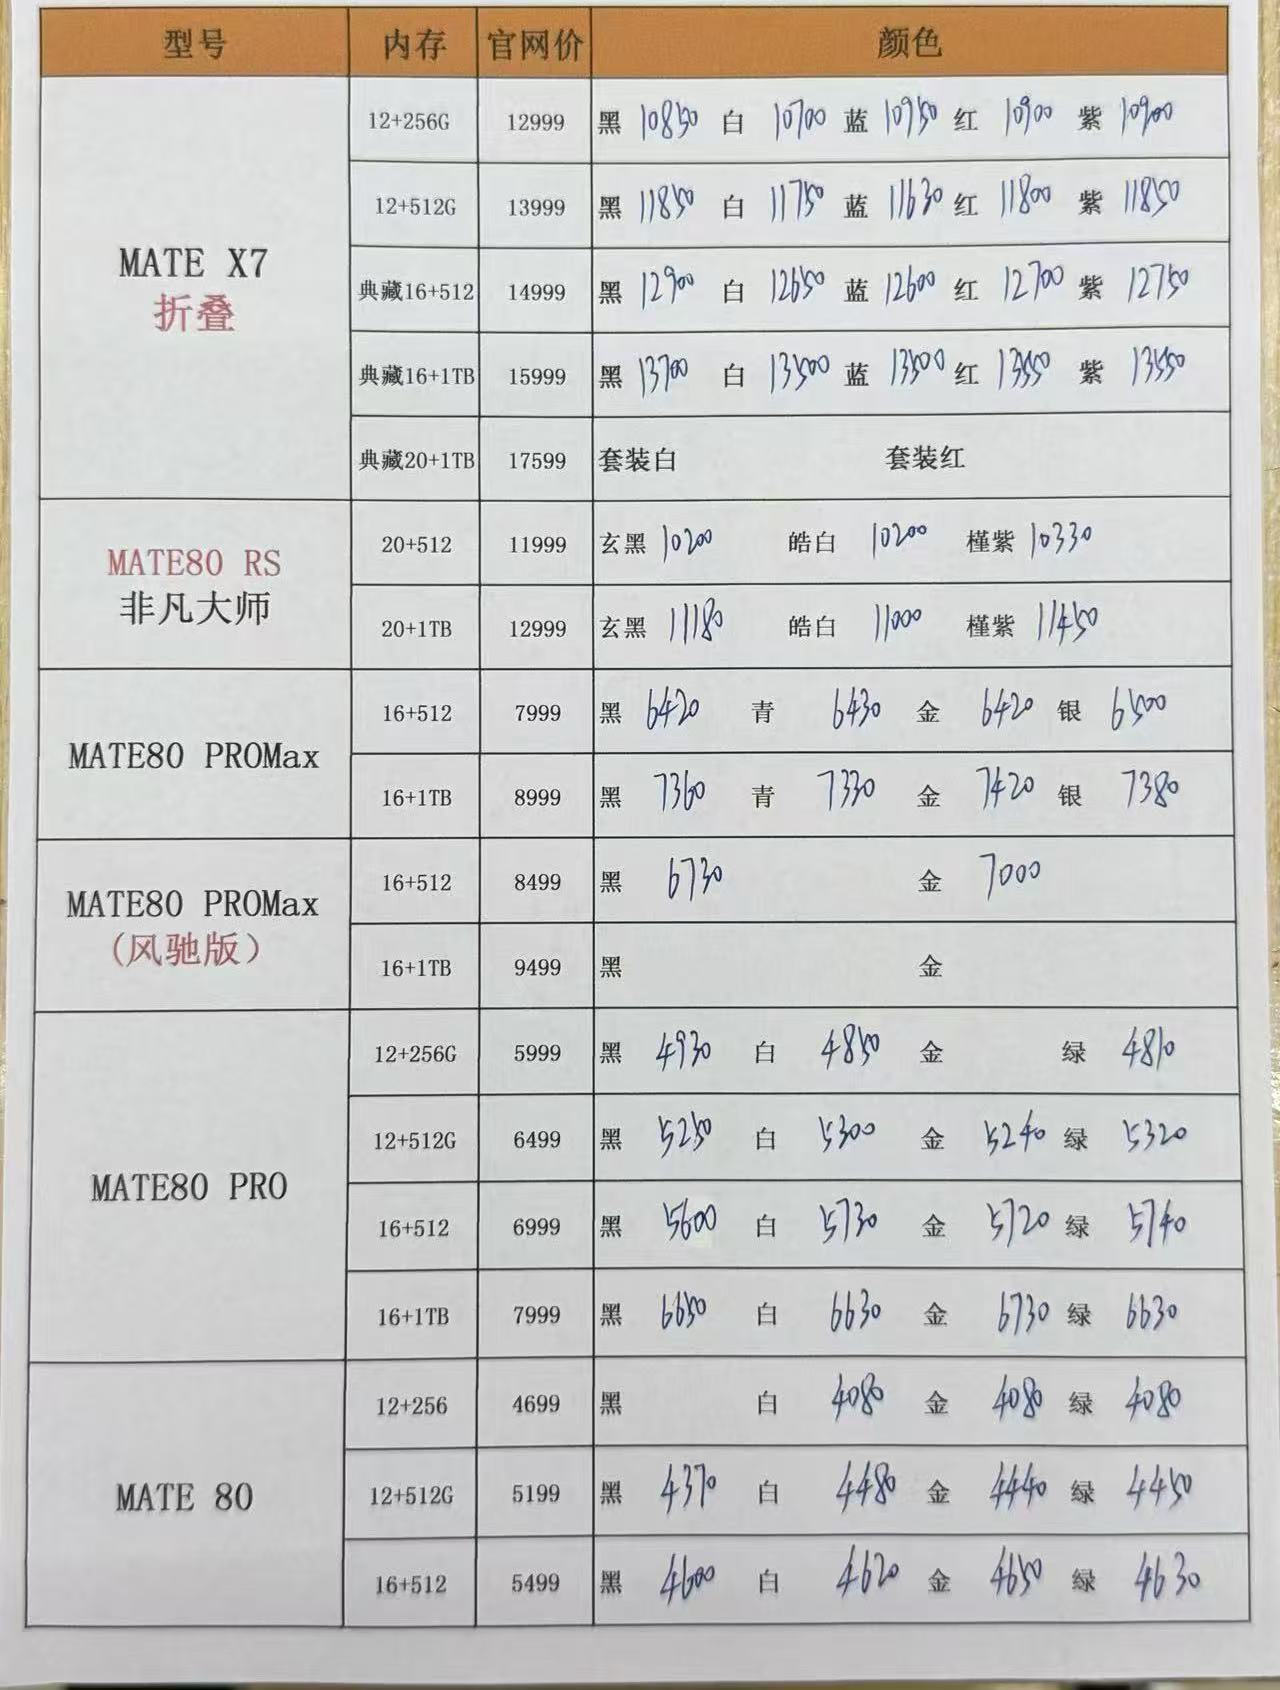 型号 内存 官网价 颜色
MATE X7
折叠
12+256G 12999 黑 10850 白 10700 蓝 10950 红 10900 紫 10900
12+512G 13999 黑 11850 白 11750 蓝 11630 红 11800 紫 11850
典藏16+512 14999 黑 12900 白 12650 蓝 12600 红 12700 紫 12750
典藏16+1TB 15999 黑 13700 白 13500 蓝 13500 红 13550 紫 13550
典藏20+1TB 17599 套装白 套装红
MATE80 RS
非凡大师
20+512 11999 玄黑 10200 皓白 10200 槿紫 10330
20+1TB 12999 玄黑 11180 皓白 11000 槿紫 11450
MATE80 PROMax
16+512 7999 黑 6420 青 6430 金 6420 银 6500
16+1TB 8999 黑 7360 青 7330 金 7420 银 7380
MATE80 PROMax
(风驰版)
16+512 8499 黑 6730 金 7000
16+1TB 9499 黑 金
MATE80 PRO
12+256G 5999 黑 4930 白 4850 金 绿 4810
12+512G 6499 黑 5250 白 5300 金 5240 绿 5320
16+512 6999 黑 5600 白 5730 金 5720 绿 5740
16+1TB 7999 黑 6650 白 6630 金 6730 绿 6630
MATE 80
12+256 4699 黑 白 4080 金 4080 绿 4080
12+512G 5199 黑 4370 白 4480 金 4440 绿 4450
16+512 5499 黑 4600 白 4620 金 4650 绿 4630